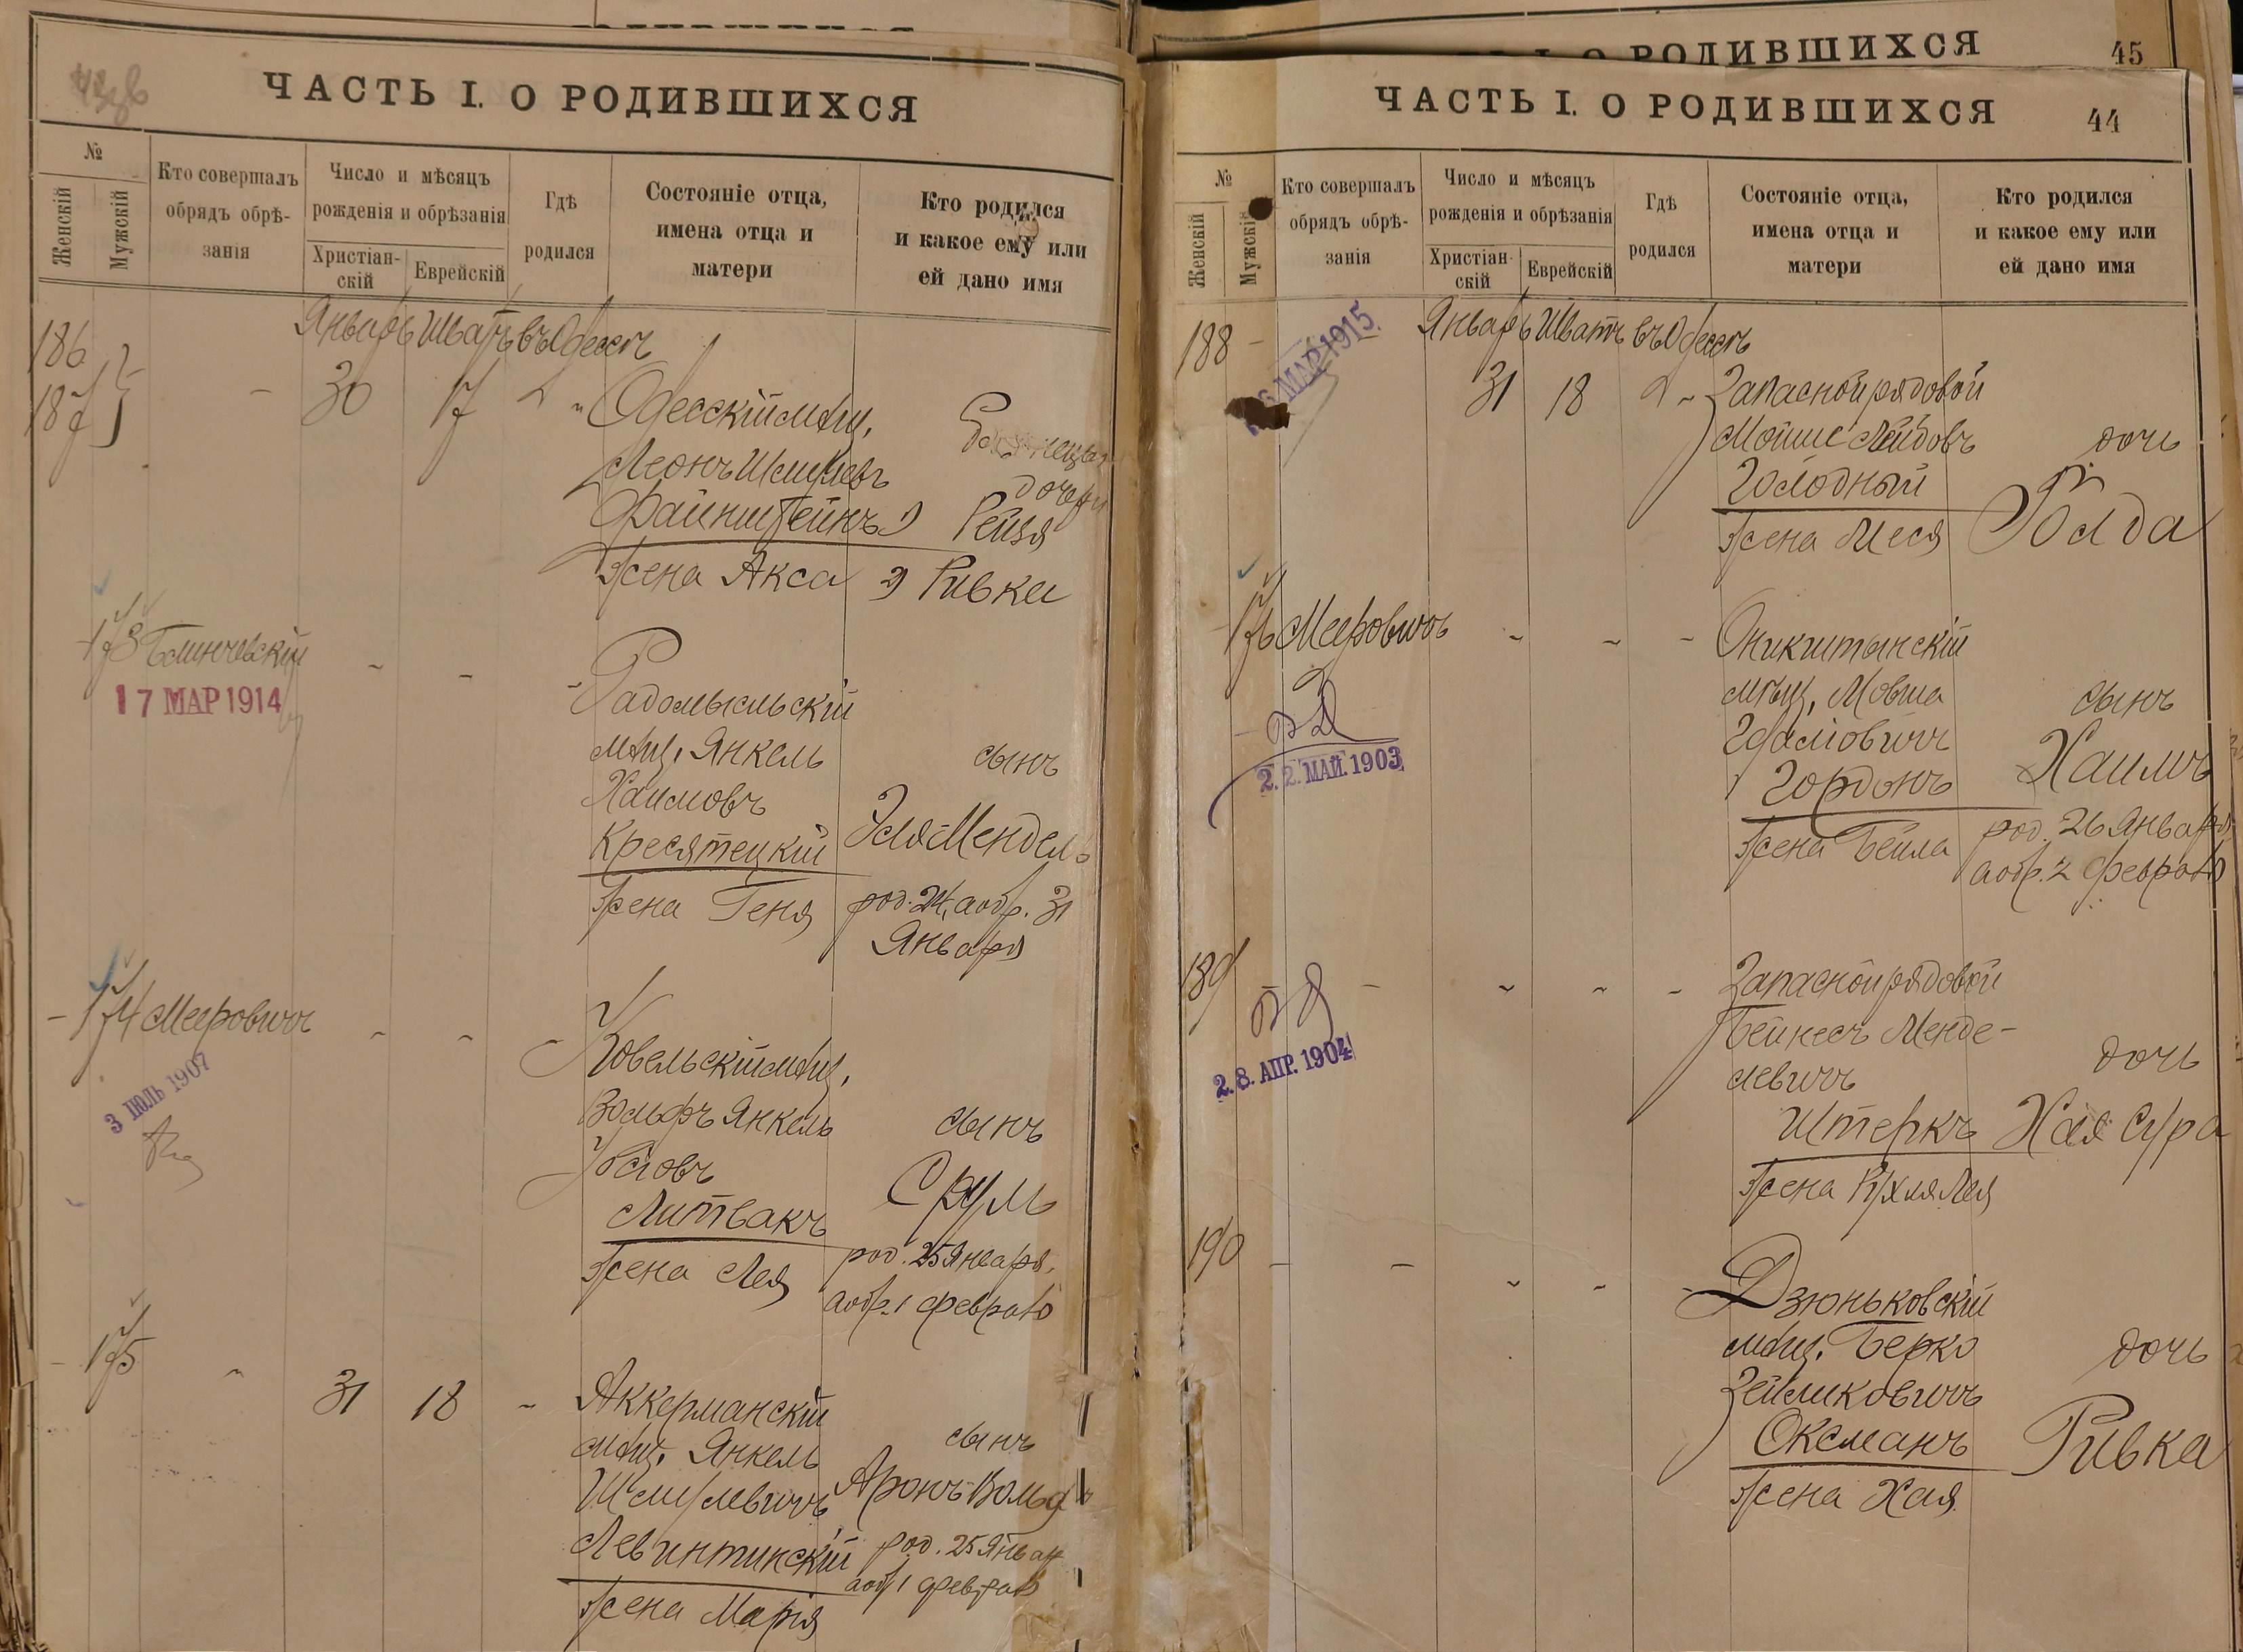 ЧАСТЬ I. О РОДИВШИХСЯ
№
Женскій
Мужскій
Кто совершалъ
обрядъ обрѣ-
занія
Число и мѣсяцъ
рожденія и обрѣзанія
Христіан-
скій
Еврейскій
Гдѣ
родился
Состояніе отца,
имена отца и
матери
Кто родился
и какое ему или
ей дано имя
Январь Шватъ въ Одессѣ
186
187
30 17
Одесскій мѣщ.
Леонъ Шмулевъ
Файнштейнъ
жена Акса
дочери
1) Рейзя
2) Ривка
173
17 МАР 1914
Радомысльскій
мѣщ. Янкель
Хаимовъ
Кресятецкій
жена Геня
сынъ
Эля Мендель
род. 24, а обр. 31
Января
174 Мееровичъ
3 ІЮЛЬ 1907
Ковельскій мѣщ.
Вольфъ Янкель
Литвакъ
жена Лея
сынъ
Сруль
род. 25 Января,
а обр. 1 Февраля
175
31 18
Аккерманскій
мѣщ. Янкель
Шмулевичъ
Левинтинскій
жена Марія
сынъ
Аронъ Вольф
род. 25 Январ
а обр 1 Февраля
ЧАСТЬ I. О РОДИВШИХСЯ
45
ЧАСТЬ I. О РОДИВШИХСЯ
44
№
Женскій
Мужскій
Кто совершалъ
обрядъ обрѣ-
занія
Число и мѣсяцъ
рожденія и обрѣзанія
Христіан-
скій
Еврейскій
Гдѣ
родился
Состояніе отца,
имена отца и
матери
Кто родился
и какое ему или
ей дано имя
Январь Шватъ въ Одессѣ
188
МАР 1915
31 18
Запасной рядовой
Мойше Лейбовъ
Голодный
жена Меся
дочь
Голда
176 Мееровичъ
2.2. МАЙ. 1903
Оникштынскій
мѣщ. Мовша
Гдаліовичъ
Гордонъ
жена Бейла
сынъ
Хаимъ
род. 26 Января
а обр. 2 Февраля
189
2.8. АПР. 1904
Запасной рядовой
Бейнесъ Менде-
левичъ
Штеркъ
жена Рухля Лея
дочь
Хая Сура
190
Дзюньковскій
мѣщ. Берко
Зейликовичъ
Оксманъ
жена Хая
дочь
Ривка